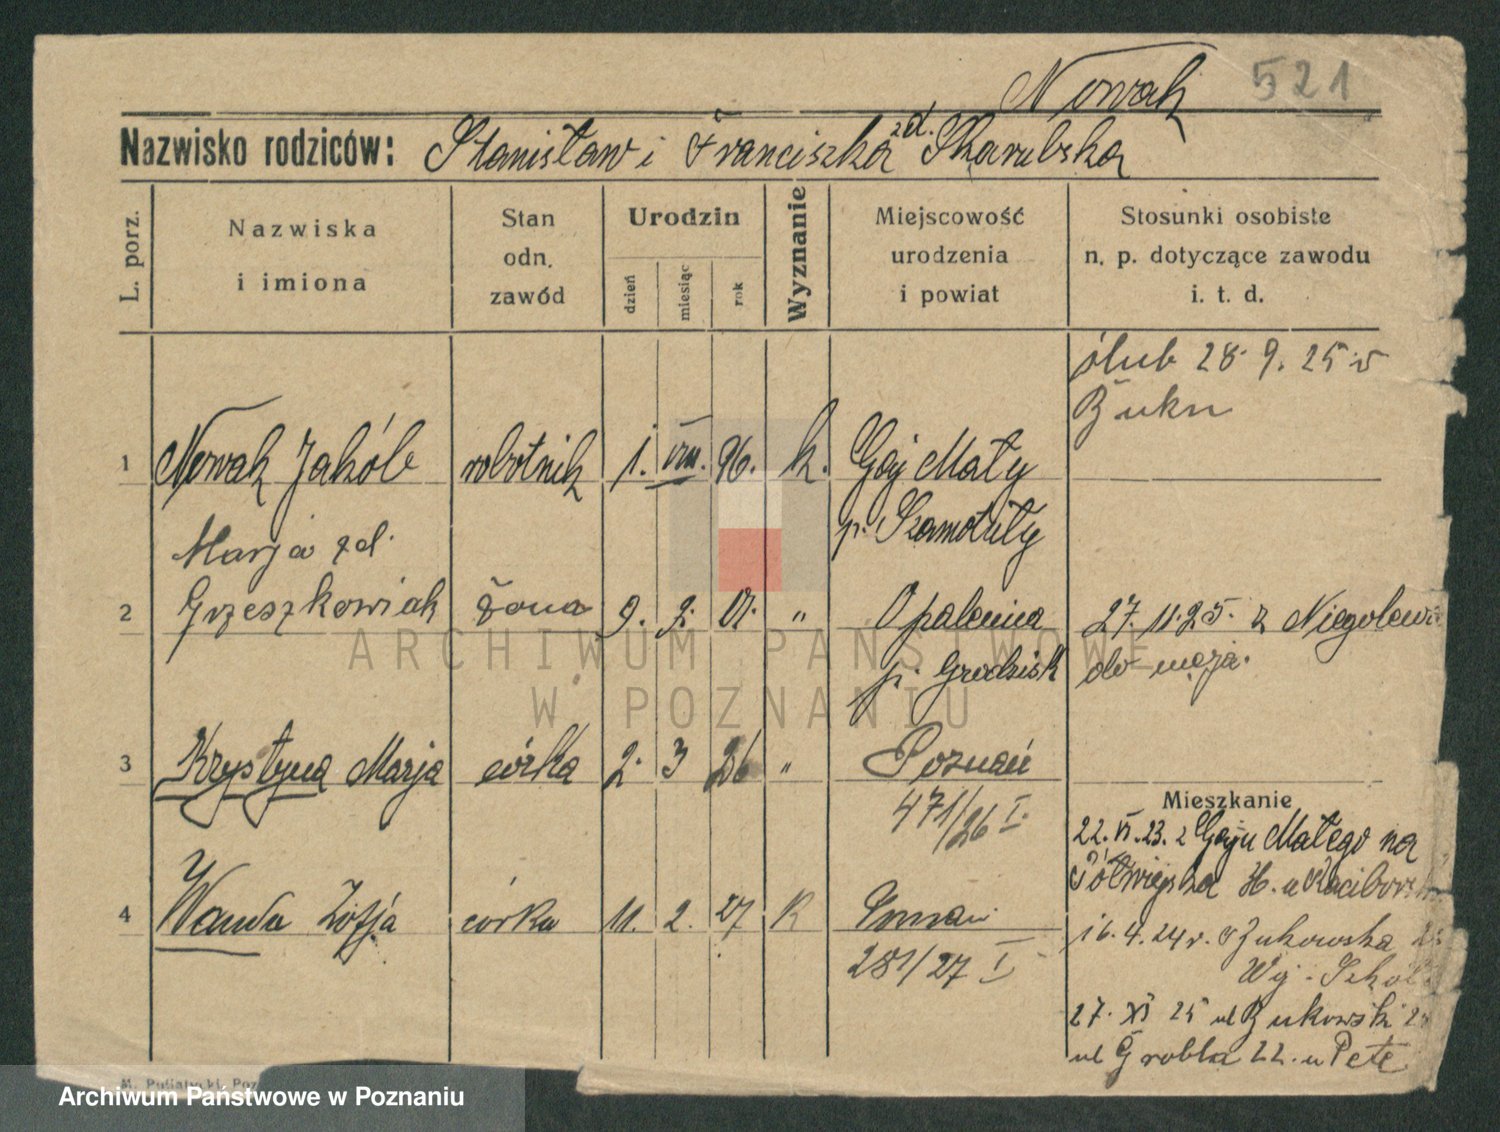 Nowak 521
Nazwisko rodziców: Stanisław i Franciszka zd. Skarubska
L. porz.
Nazwiska
i imiona
Stan
odn.
zawód
Urodzin
dzień
miesiąc
rok
Wyznanie
Miejscowość
urodzenia
i powiat
Stosunki osobiste
n. p. dotyczące zawodu
i. t. d.
ślub 28. 9. 25 w
Buku
1 Nowak Jakób robotnik 1. VIII. 96. k. Gaj Mały
p. Szamotuły
Marja zd.
2 Grzeszkowiak żona 9. 2. 01. " Opalenica 27. 11. 25. z Niegolewa
p. Grodzisk do męża.
3 Krystyna Marja córka 2. 3 26 " Poznań
471/26 I.
Mieszkanie
22. VI. 23. z Gaju Małego na
Półwiejska H. u
4 Wanda Zofja córka 11. 2. 27 K Poznań
281/27 I
16. 4. 24 r. Żukowska
27. XI 25 ul Bukowski
ul Grobla 22. u
ARCHIWUM PAŃSTWOWE
W POZNANIU
Archiwum Państwowe w Poznaniu